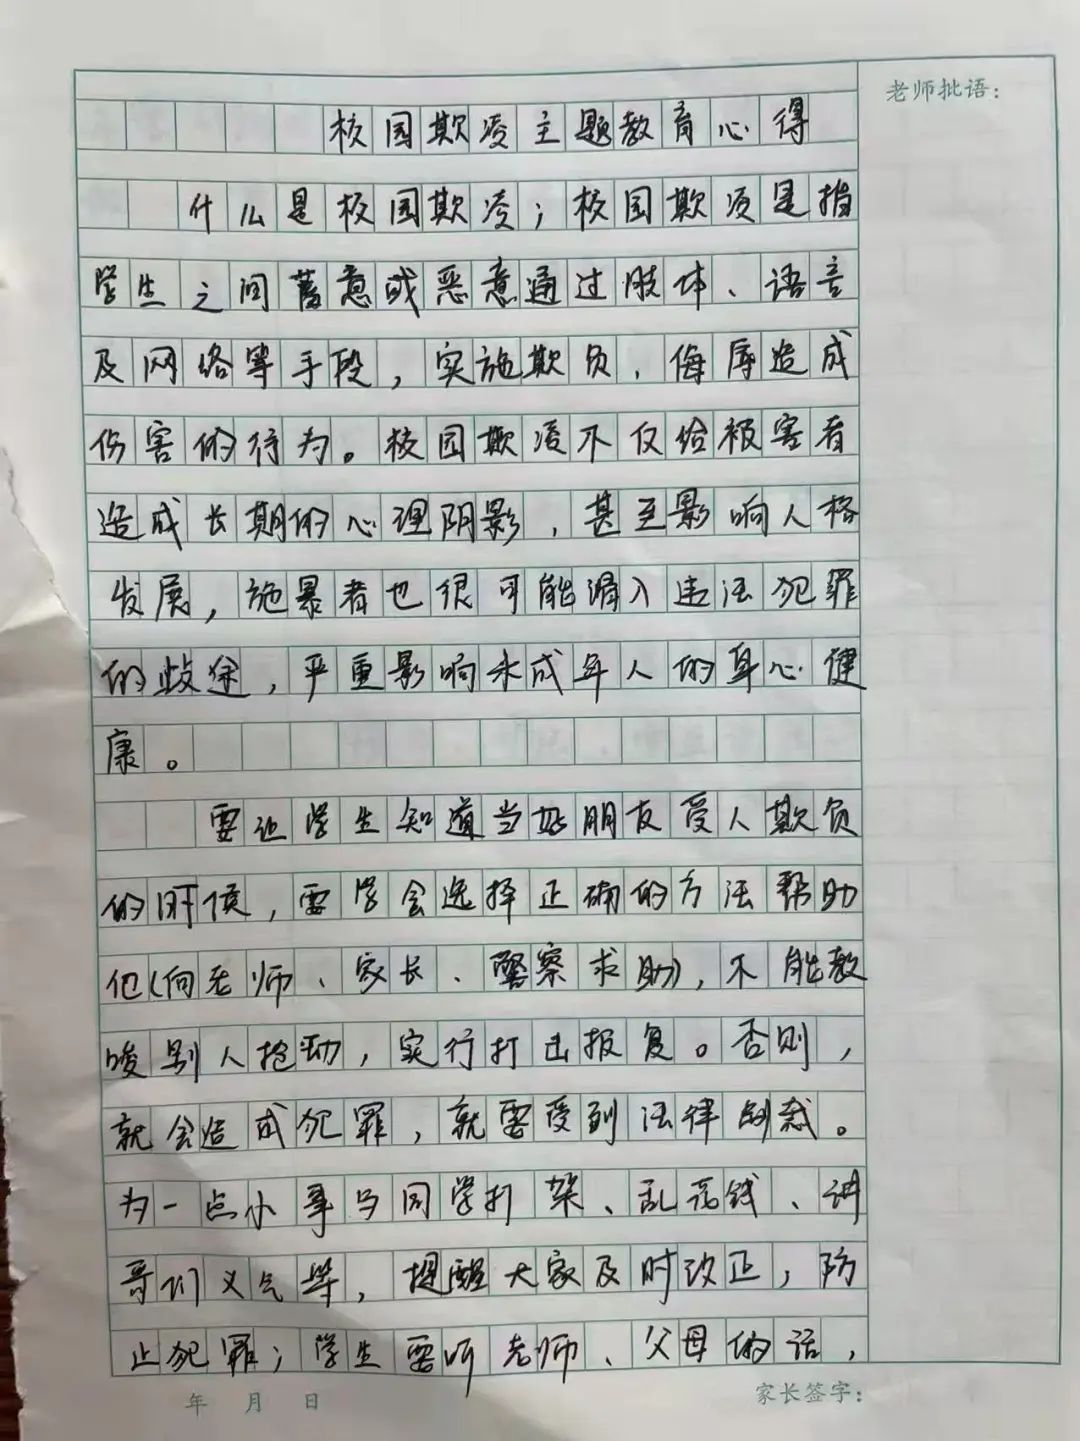 老师批语：
校园欺凌主题教育心得
什么是校园欺凌；校园欺凌是指
学生之间蓄意或恶意通过肢体、语言
及网络等手段，实施欺负、侮辱造成
伤害的行为。校园欺凌不仅给被害者
造成长期的心理阴影，甚至影响人格
发展，施暴者也很可能滑入违法犯罪
的歧途，严重影响未成年人的身心健
康。
要让学生知道当好朋友受人欺负
的时候，要学会选择正确的方法帮助
他(向老师、家长、警察求助)，不能教
唆别人抢劫，实行打击报复。否则，
就会造成犯罪，就要受到法律制裁。
为一点小事与同学打架、乱花钱、讲
哥们义气等，提醒大家及时改正，防
止犯罪；学生要听老师、父母的话，
年 月 日
家长签字：